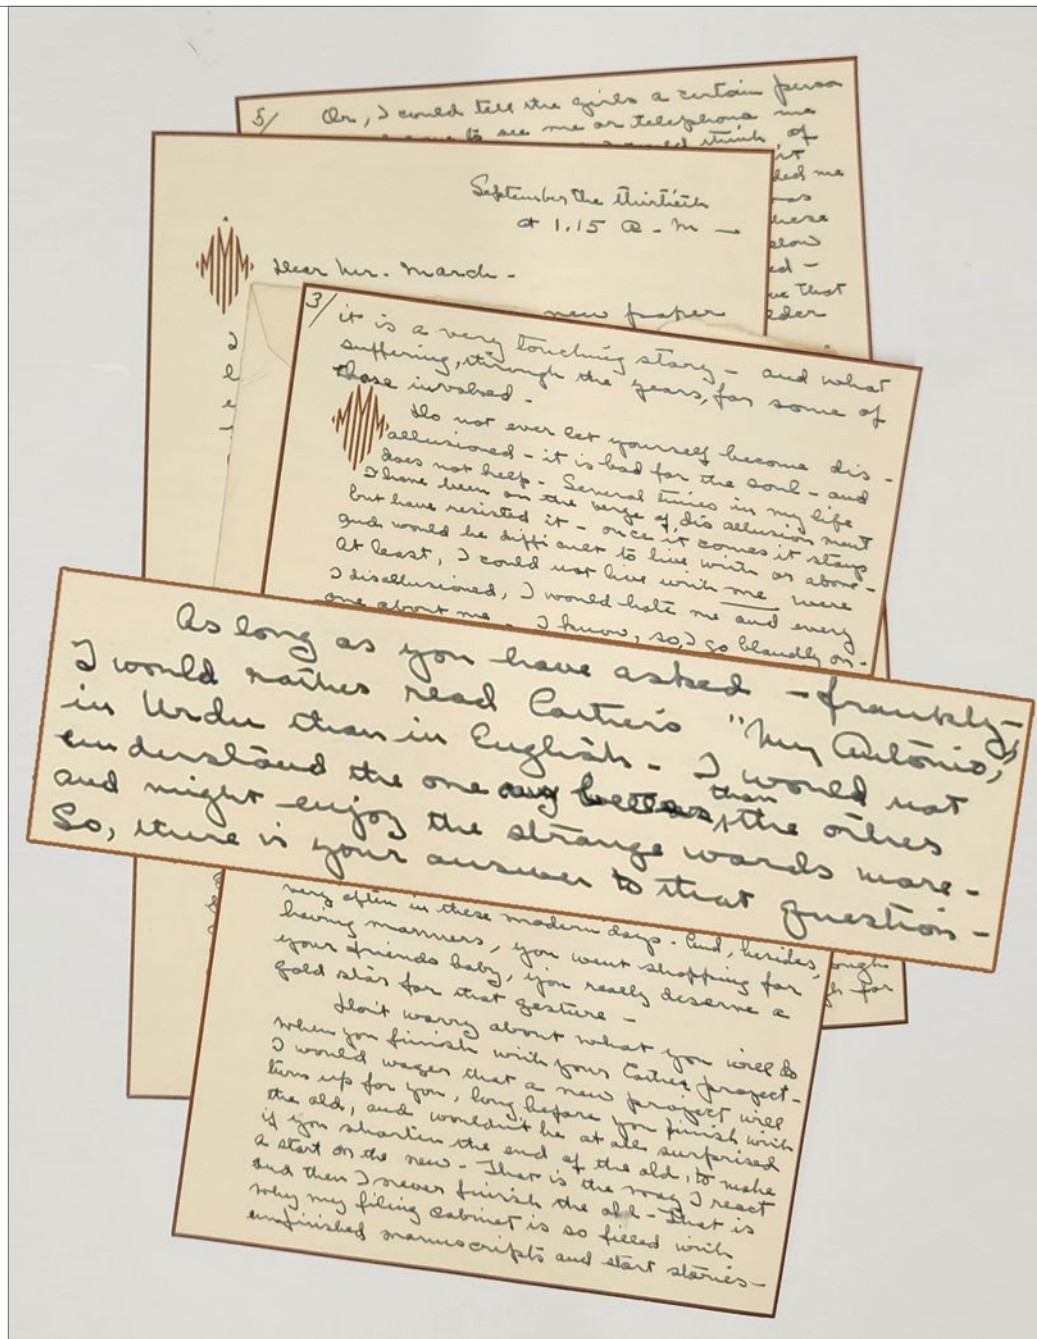 5/ Or, I could tell the girls a certain person
to see me or telephone me
would think, of
it
ded me
as
these
slow
ed -
ve that
eder
September the thirtieth
at 1.15 A.M -
Dear Mr. March -
new paper
3/ it is a very touching story - and what
suffering, through the years, for some of
those involved.
Do not ever let yourself become dis -
allusioned - it is bad for the soul - and
does not help - Several times in my life
I have been on the verge of disallusionment
but have resisted it - once it comes it stays
and would be difficult to live with or above -
At least, I could not live with me were
I disallusioned, I would hate me and every
one about me - I know, so, I go blandly on -
As long as you have asked - frankly -
I would rather read Cather's "My Antonio,"
in Urdu than in English - I would not
understand the one any better, than the other
and might enjoy the strange words more -
So, there is your answer to that question -
very often in these modern days - And, besides,
having manners, you went shopping for
your friends baby, you really deserve a
gold star for that gesture -
Don't worry about what you will do
when you finish with your Cather project -
I would wager that a new project will
turn up for you, long before you finish with
the old, and wouldn't be at all surprised
if you shorten the end of the old, to make
a start on the new - That is the way I react
and then I never finish the old - That is
why my filing cabinet is so filled with
unfinished manuscripts and start stories -